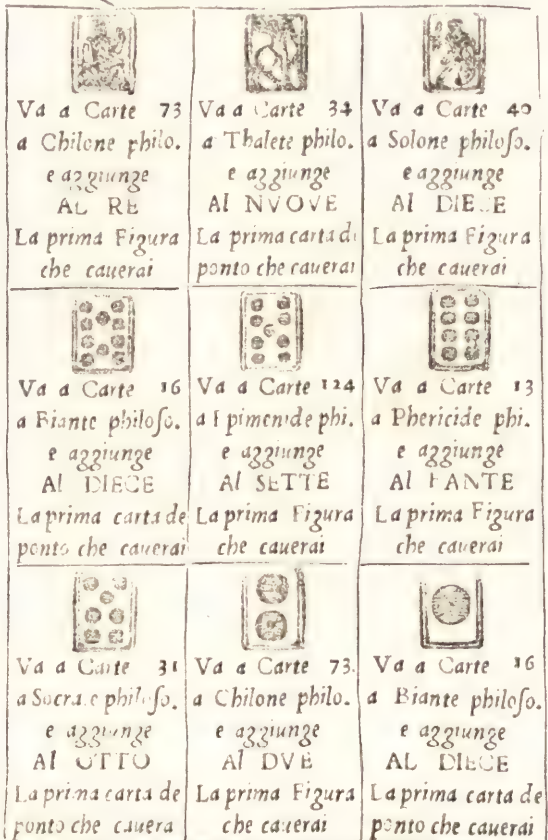 Va a Carte 73
a Chilone philo.
e aggiunge
AL RE
La prima Figura
che cauerai
Va a Carte 34
a Thalete philo.
e aggiunge
Al NVOVE
La prima carta di
ponto che cauerai
Va a Carte 40
a Solone philoſo.
e aggiunge
Al DIECE
La prima Figura
che cauerai
Va a Carte 16
a Biante philoſo.
e aggiunge
Al DIECE
La prima carta de
ponto che cauerai
Va a Carte 124
a Epimenide phi.
e aggiunge
Al SETTE
La prima Figura
che cauerai
Va a Carte 13
a Phericide phi.
e aggiunge
Al FANTE
La prima Figura
che cauerai
Va a Carte 31
a Socrate philoſo.
e aggiunge
Al OTTO
La prima carta de
ponto che cauera
Va a Carte 73.
a Chilone philo.
e aggiunge
Al DVE
La prima Figura
che cauerai
Va a Carte 16
a Biante philoſo.
e aggiunge
AL DIECE
La prima carta de
ponto che cauerai